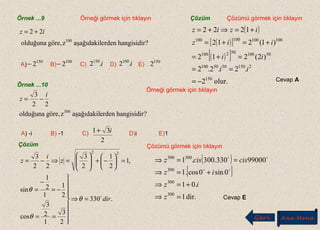 Örnek ...9
Örneği görmek için tıklayın
z = 2 + 2i
olduğuna göre, z^100 aşağıdakilerden hangisidir?
A)−2^150 B)−2^100 C) 2^150.i D) 2^100.i E) 2^150
Çözüm
Çözümü görmek için tıklayın
z = 2 + 2i ⇒ z = 2[1 + i]
z^100 = 2[1 + i]^100 = 2^100.(1 + i)^100
= 2^100[(1 + i)^2]^50 = 2^100.(2i)^50
= 2^100.2^50.i^50 = 2^150.i^2
= −2^150 olur.
Cevap A
Örnek ...10
Örneği görmek için tıklayın
z = √3/2 − i/2
olduğuna göre, z^300 aşağıdakilerden hangisidir?
A) -i B) -1 C) (1 + √3i)/2 D)i E)1
Çözüm
Çözümü görmek için tıklayın
z = √3/2 − i/2 ⇒ |z| = √((√3/2)^2 + (−1/2)^2) = 1,
sinθ = −(1/2)/1 = −1/2
cosθ = (√3/2)/1 = √3/2
⇒ θ = 330° dir.
⇒ z^300 = 1^300.cis(300.330°) = cis99000°
⇒ z^300 = 1[cos0° + i sin0°]
⇒ z^300 = 1 + 0.i
⇒ z^300 = 1 dir.
Cevap E
Geri
Ana Menü